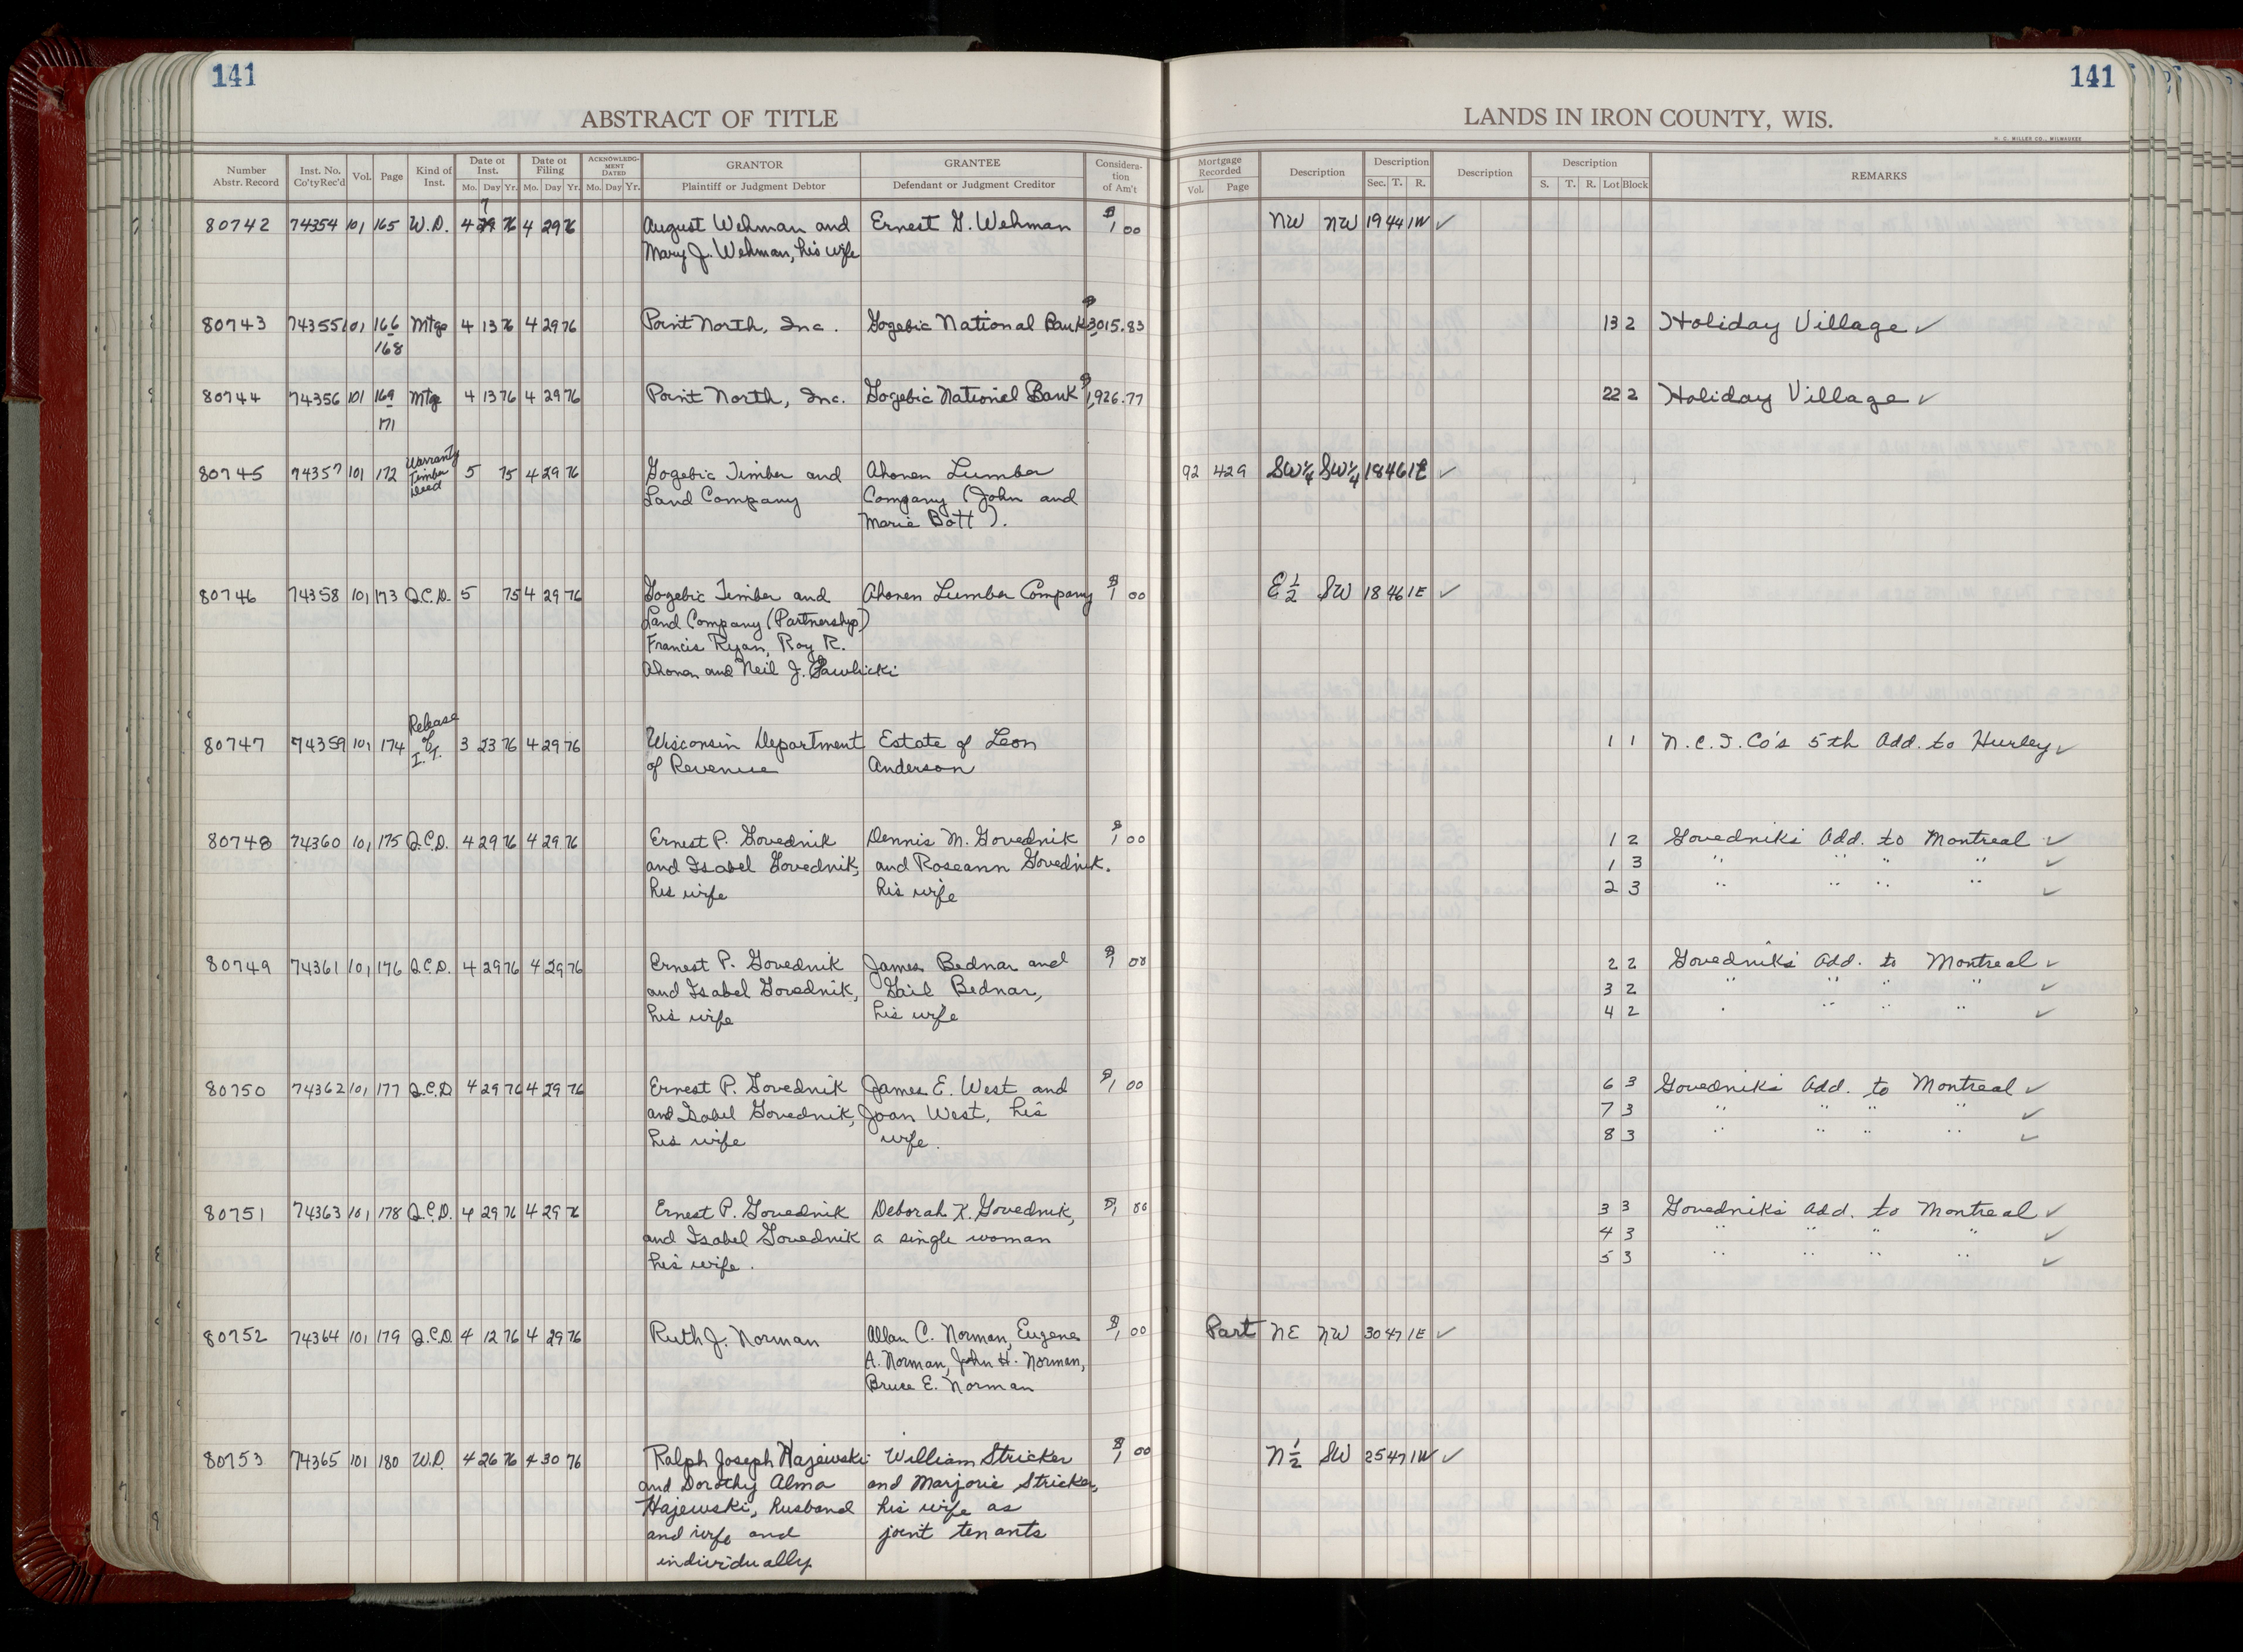 141
141
ABSTRACT OF TITLE
LANDS IN IRON COUNTY, WIS.
H. C. MILLER CO., MILWAUKEE
Number Abstr. Record | Inst. No. Co'ty Rec'd | Vol. | Page | Kind of Inst. | Date of Inst. Mo. Day Yr. | Date of Filing Mo. Day Yr. | ACKNOWLEDGMENT DATED Mo. Day Yr. | GRANTOR Plaintiff or Judgment Debtor | GRANTEE Defendant or Judgment Creditor | Consideration of Am't | Mortgage Recorded Vol. Page | Description | Description Sec. T. R. | Description | Description S. T. R. Lot Block | REMARKS
7
80742 74354 101 165 W.D. 4 29 76 4 29 76 August Wehman and Ernest G. Wehman $1 00 NW NW 19 44 1W ✓
Mary J. Wehman, his wife
80743 74355 101 166 Mtge 4 13 76 4 29 76 Point North, Inc. Gogebic National Bank $3,015.83 13 2 Holiday Village ✓
168
80744 74356 101 169 Mtge 4 13 76 4 29 76 Point North, Inc. Gogebic National Bank $1,926.77 22 2 Holiday Village ✓
171
80745 74357 101 172 Warranty Timber Deed 5 75 4 29 76 Gogebic Timber and Ahonen Lumber 92 429 SW¼ SW¼ 18 46 1E ✓
Land Company Company (John and
Marie Bott).
80746 74358 101 173 Q.C.D. 5 75 4 29 76 Gogebic Timber and Ahonen Lumber Company $1 00 E½ SW 18 46 1E ✓
Land Company (Partnership)
Francis Ryan, Roy R.
Ahonen and Neil J. Pawlicki
80747 74359 101 174 Release of I.T. 3 23 76 4 29 76 Wisconsin Department Estate of Leon 1 1 N.C.I. Co's 5th Add. to Hurley ✓
of Revenue Anderson
80748 74360 101 175 Q.C.D. 4 29 76 4 29 76 Ernest P. Govednik Dennis M. Govednik $1 00 1 2 Govedniks Add. to Montreal ✓
and Isabel Govednik, and Roseann Govednik. 1 3 " " " " ✓
his wife his wife 2 3 " " " " ✓
80749 74361 101 176 Q.C.D. 4 29 76 4 29 76 Ernest P. Govednik James Bednar and $1 00 2 2 Govedniks Add. to Montreal ✓
and Isabel Govednik, Gail Bednar, 3 2 " " " " ✓
his wife his wife 4 2 " " " " ✓
80750 74362 101 177 Q.C.D 4 29 76 4 29 76 Ernest P. Govednik James E. West and $1 00 6 3 Govedniks Add. to Montreal ✓
and Isabel Govednik, Joan West, his 7 3 " " " " ✓
his wife wife. 8 3 " " " " ✓
80751 74363 101 178 Q.C.D. 4 29 76 4 29 76 Ernest P. Govednik Deborah K. Govednik, $1 00 3 3 Govedniks Add. to Montreal ✓
and Isabel Govednik a single woman 4 3 " " " " ✓
his wife. 5 3 " " " " ✓
80752 74364 101 179 Q.C.D. 4 12 76 4 29 76 Ruth J. Norman Allan C. Norman, Eugene $1 00 Part NE NW 30 47 1E ✓
A. Norman, John H. Norman,
Bruce E. Norman
80753 74365 101 180 W.D. 4 26 76 4 30 76 Ralph Joseph Hajewski William Stricker $1 00 N½ SW 25 47 1W ✓
and Dorothy Alma and Marjorie Stricker,
Hajewski, husband his wife as
and wife and joint tenants
individually.